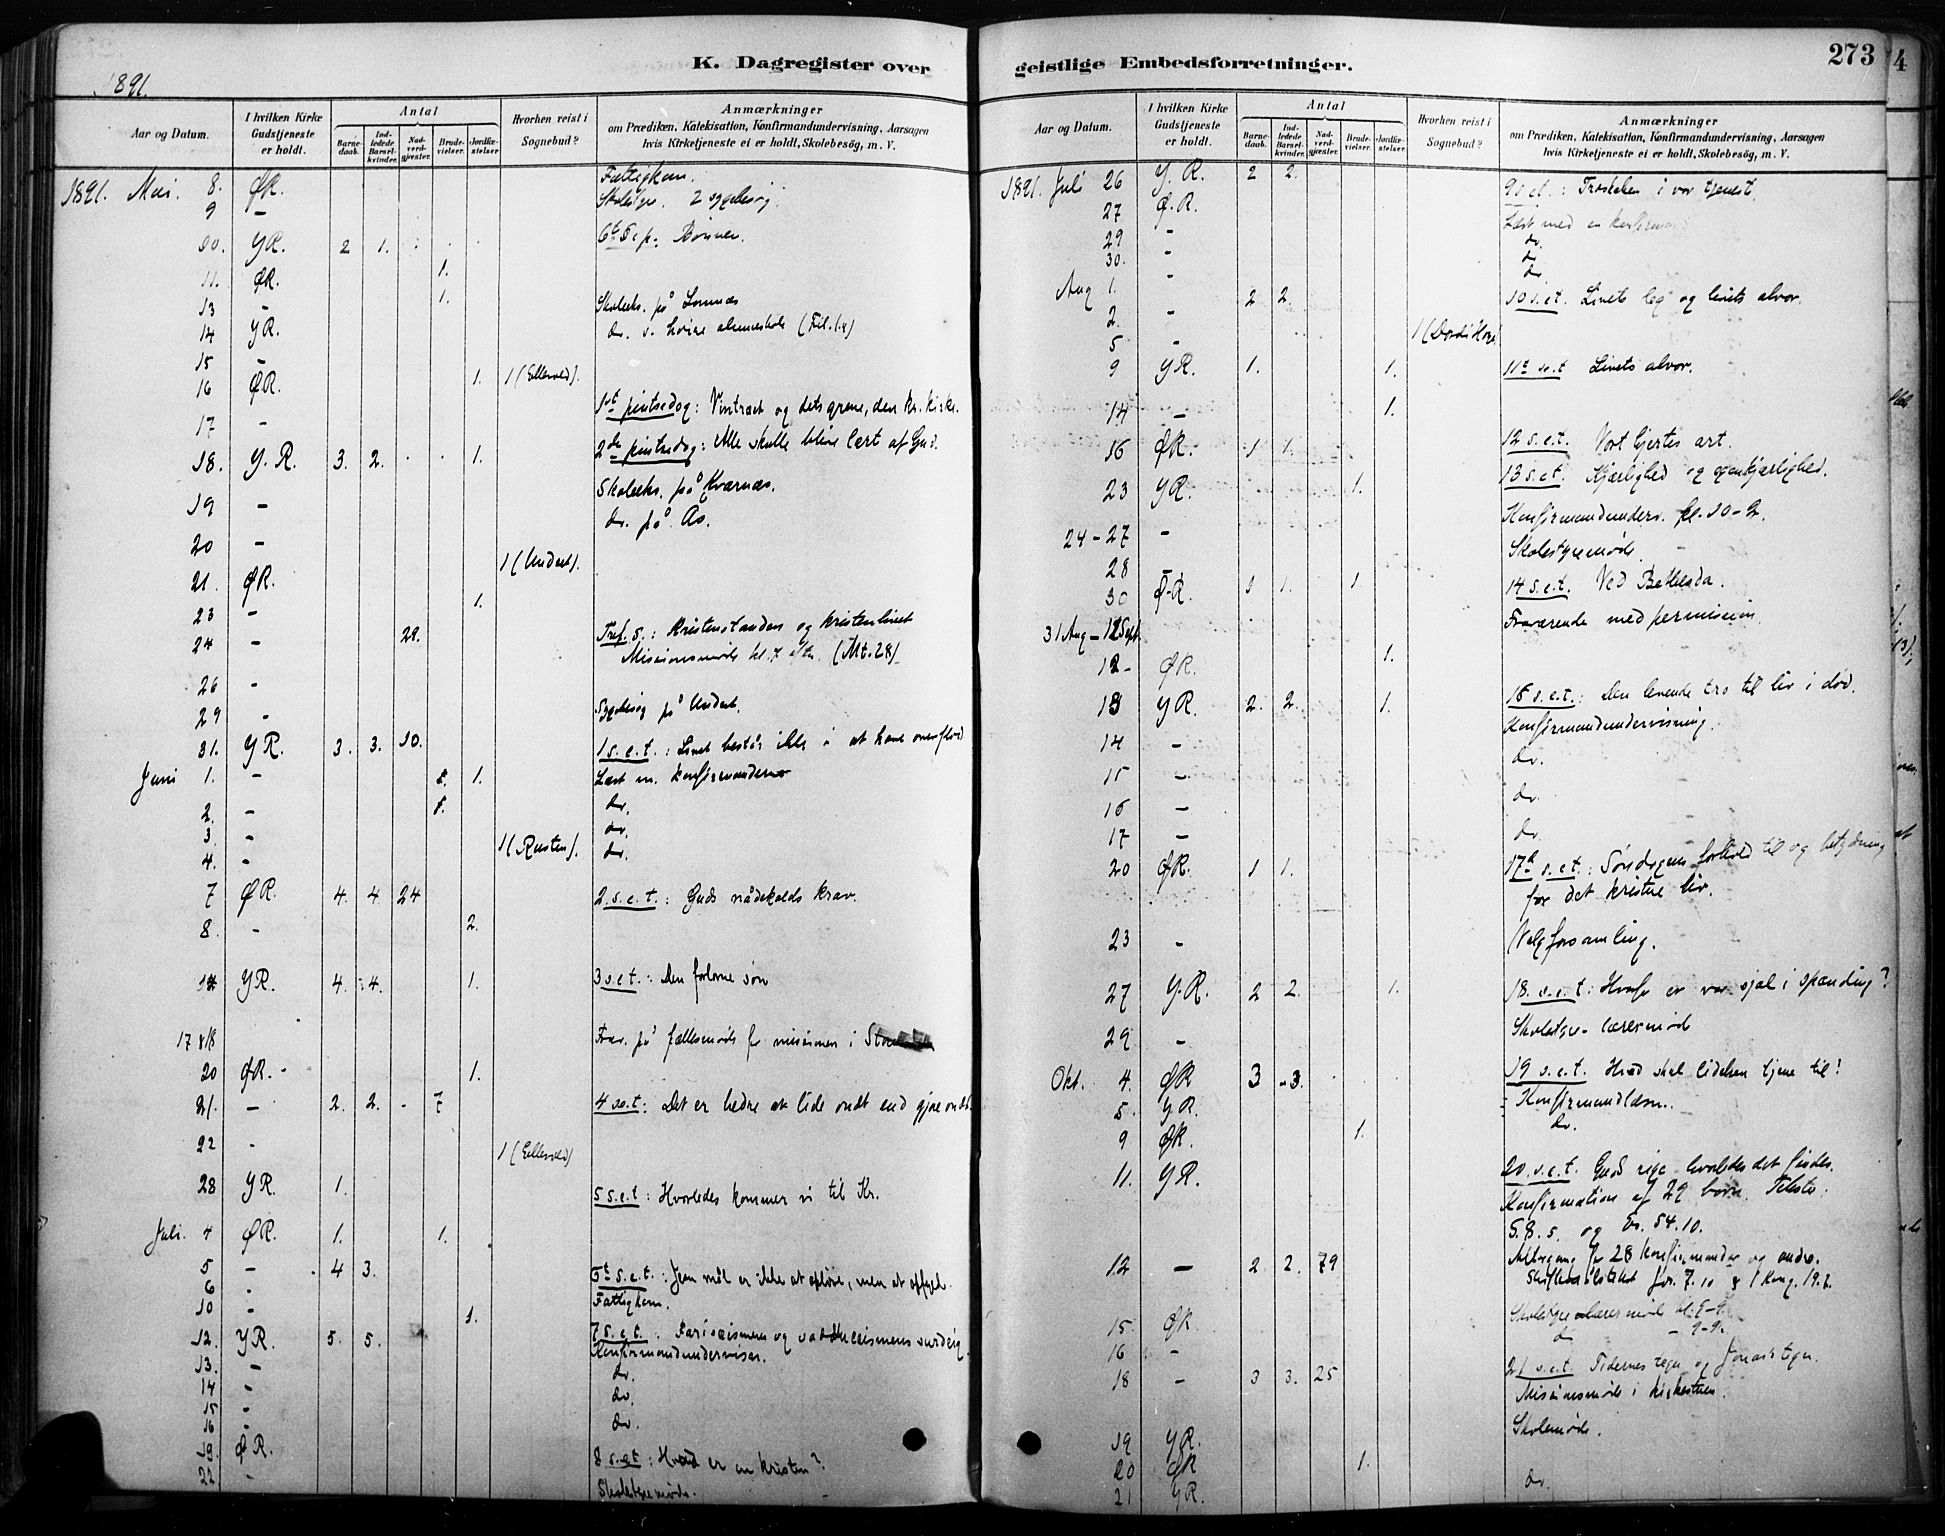 K. Dagregister over
1891.
Aar og Datum.
I hvilken Kirke Gudstjeneste er holdt.
Antal
Barnedaab.
Indledede Barselkvinder.
Nadverdgjester.
Brudevielser.
Jordfæstelser
Hvorhen reist i Sognebud?
Anmærkninger
om Prædiken, Katekisation, Konfirmandundervisning, Aarsagen
hvis Kirketjeneste ei er holdt, Skolebesög, m. V.
1891. Mai. 8. ØR. Fattigkom.
9 – 2 sygebesøg.
10. YR. 2 1.
11. ØR. 1.
13 – 1. Skoleeks. på
14 YR. do.
15 –
16 ØR. 1. 1 (Ellevold).
17 – 1st pintsedag: Vintræet og dets grene, den kr. kirke.
18. Y.R. 3. 2. 1. 2den pintsedag: Alle skulle blive lært af Gud.
19 – Skoleeks. på Kværnæs.
20 – do. på Ås.
21. ØR. 1 (Undset).
23 – 1.
24 – 29. Tref. s.: Kristenstanden og kristenlivet
Missionsmøde kl. 7 (Mt. 28)
26 –
29 – Sygebesøg på Undset.
31. YR. 3. 3. 10. 1 s.e.t.: Livet består ikke i at have overflod
Juni 1. – 1. Læst m. konfirmanderne
2. – do.
3. – do.
4. – 1 (Rusten). do.
7 ØR. 4. 4 24 2. s.e.t.: Guds nådekalds krav.
8. – 2.
14 YR. 4. 4. 1. 3 s.e.t.: Den forlorne søn
17 & 18 Frav. på fællesmøde for missionen i
20 ØR. 1.
21. – 2. 2. 7 4 s.e.t: Det er bedre at lide ondt end gjøre ondt.
22 – 1 (Ellevold)
28 YR. 1. 5 s.e.t: Hvorledes kommer vi til Kr.
Juli. 4 ØR. 1. 1.
5 – 4 3. 6t s.e.t.: Jesu mål er ikke at opløse, men at opfyld.
6 – Fattigkom.
10 – 1.
12. YR. 5. 5. 7 s.e.t. Farisæismens og sadducæismens surdeig.
13. – Konfirmandundervisn.
14 – do.
15 – do.
16 – do.
19. ØR. 8 s.e.t: Hvad er en kristen?
22 – Skolestyremøde.
geistlige Embedsforretninger. 273
Aar og Datum.
I hvilken Kirke Gudstjeneste er holdt.
Antal
Barnedaab.
Indledede Barselkvinder.
Nadverdgjester.
Brudevielser.
Jordfæstelser
Hvorhen reist i Sognebud?
Anmærkninger
om Prædiken, Katekisation, Konfirmandundervisning, Aarsagen
hvis Kirketjeneste ei er holdt, Skolebesög, m. V.
1891. Juli 26 Y.R. 2 2. 9 s.e.t.: Troskaben i vor tjenest.
27 Ø.R. Læst med en konfirmand
29 – do.
30. – do
Aug 1. – do
2. – 2 2. 10 s.e.t. Livets leg og livets alvor.
5 – 1
9 YR. 1. 1. 11te s.e.t Livets alvor.
14 – 1.
16 ØR. 1 1. 12 s.e.t. Vort hjertes art.
23 YR. 1. 13 s.e.t. Kjærlighed og egenkjærlighed.
24–27 – Konfirmandunderv. kl. 10–2.
28 – Skolestyremøde.
30 Ø.R. 1 1. 1. 14 s.e.t. Ved Bethesda.
31 Aug – Sept. Fraværende med permission
12 ØR. 1.
13 YR. 2. 2. 1. 16 s.e.t.: Den levende tro til liv i død.
14 – Konfirmandundervisning.
15 – do.
16 – do.
17 – do.
20 ØR. 1 1. 17de s.e.t.: Søndagens forhold til og betydning
for det kristne liv.
23 – Valgforsamling.
27 Y.R. 2 2. 1. 18. s.e.t: Hvorfor er vor sjæl i spænding?
29 – Skolestyre- lærermøde
Okt. 4. ØR 3 3. 19 s.e.t. Hvad skal lidelsen tjene til?
5. YR. Konfirmandlæsn.
9 ØR. 1. do.
11. YR. 20. s.e.t. Guds rige, hvorledes det findes.
Konfirmation af 29 børn. Tekster:
S. 8. 5. og Es. 54.10.
12 – 2. 2. 79 Altergang for 28 konfirmander og andre.
& 1 Kong. 19.7.
15. ØR. Skolestyre-lærermøde
16 – do
18 – 3 3. 25 21 s.e.t. Tidernes tegn og Jonas's tegn.
Missionsmøde i kirkestuen.
19 YR. Skolemøde.
20 ØR 1.
21 YR. do.